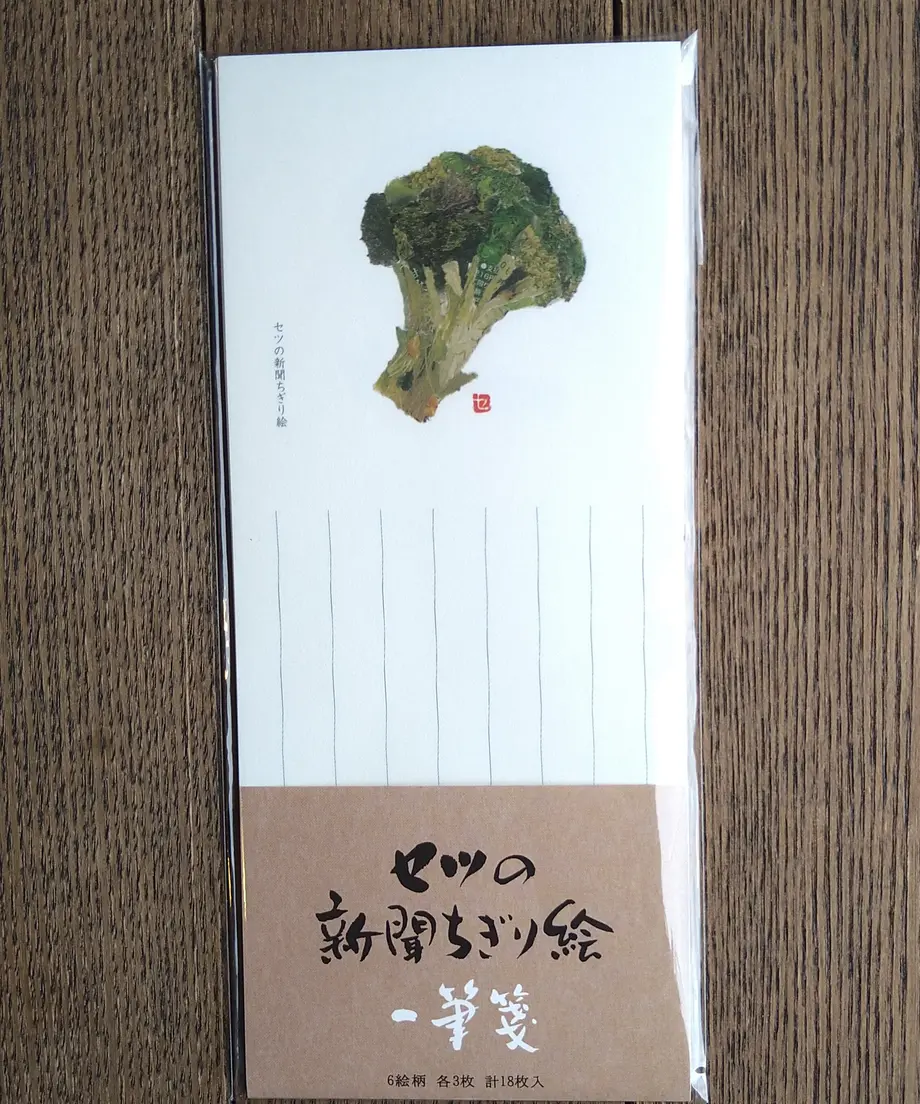 セツの新聞ちぎり絵
セ
セツの
新聞ちぎり絵
一筆箋
6絵柄 各3枚 計18枚入